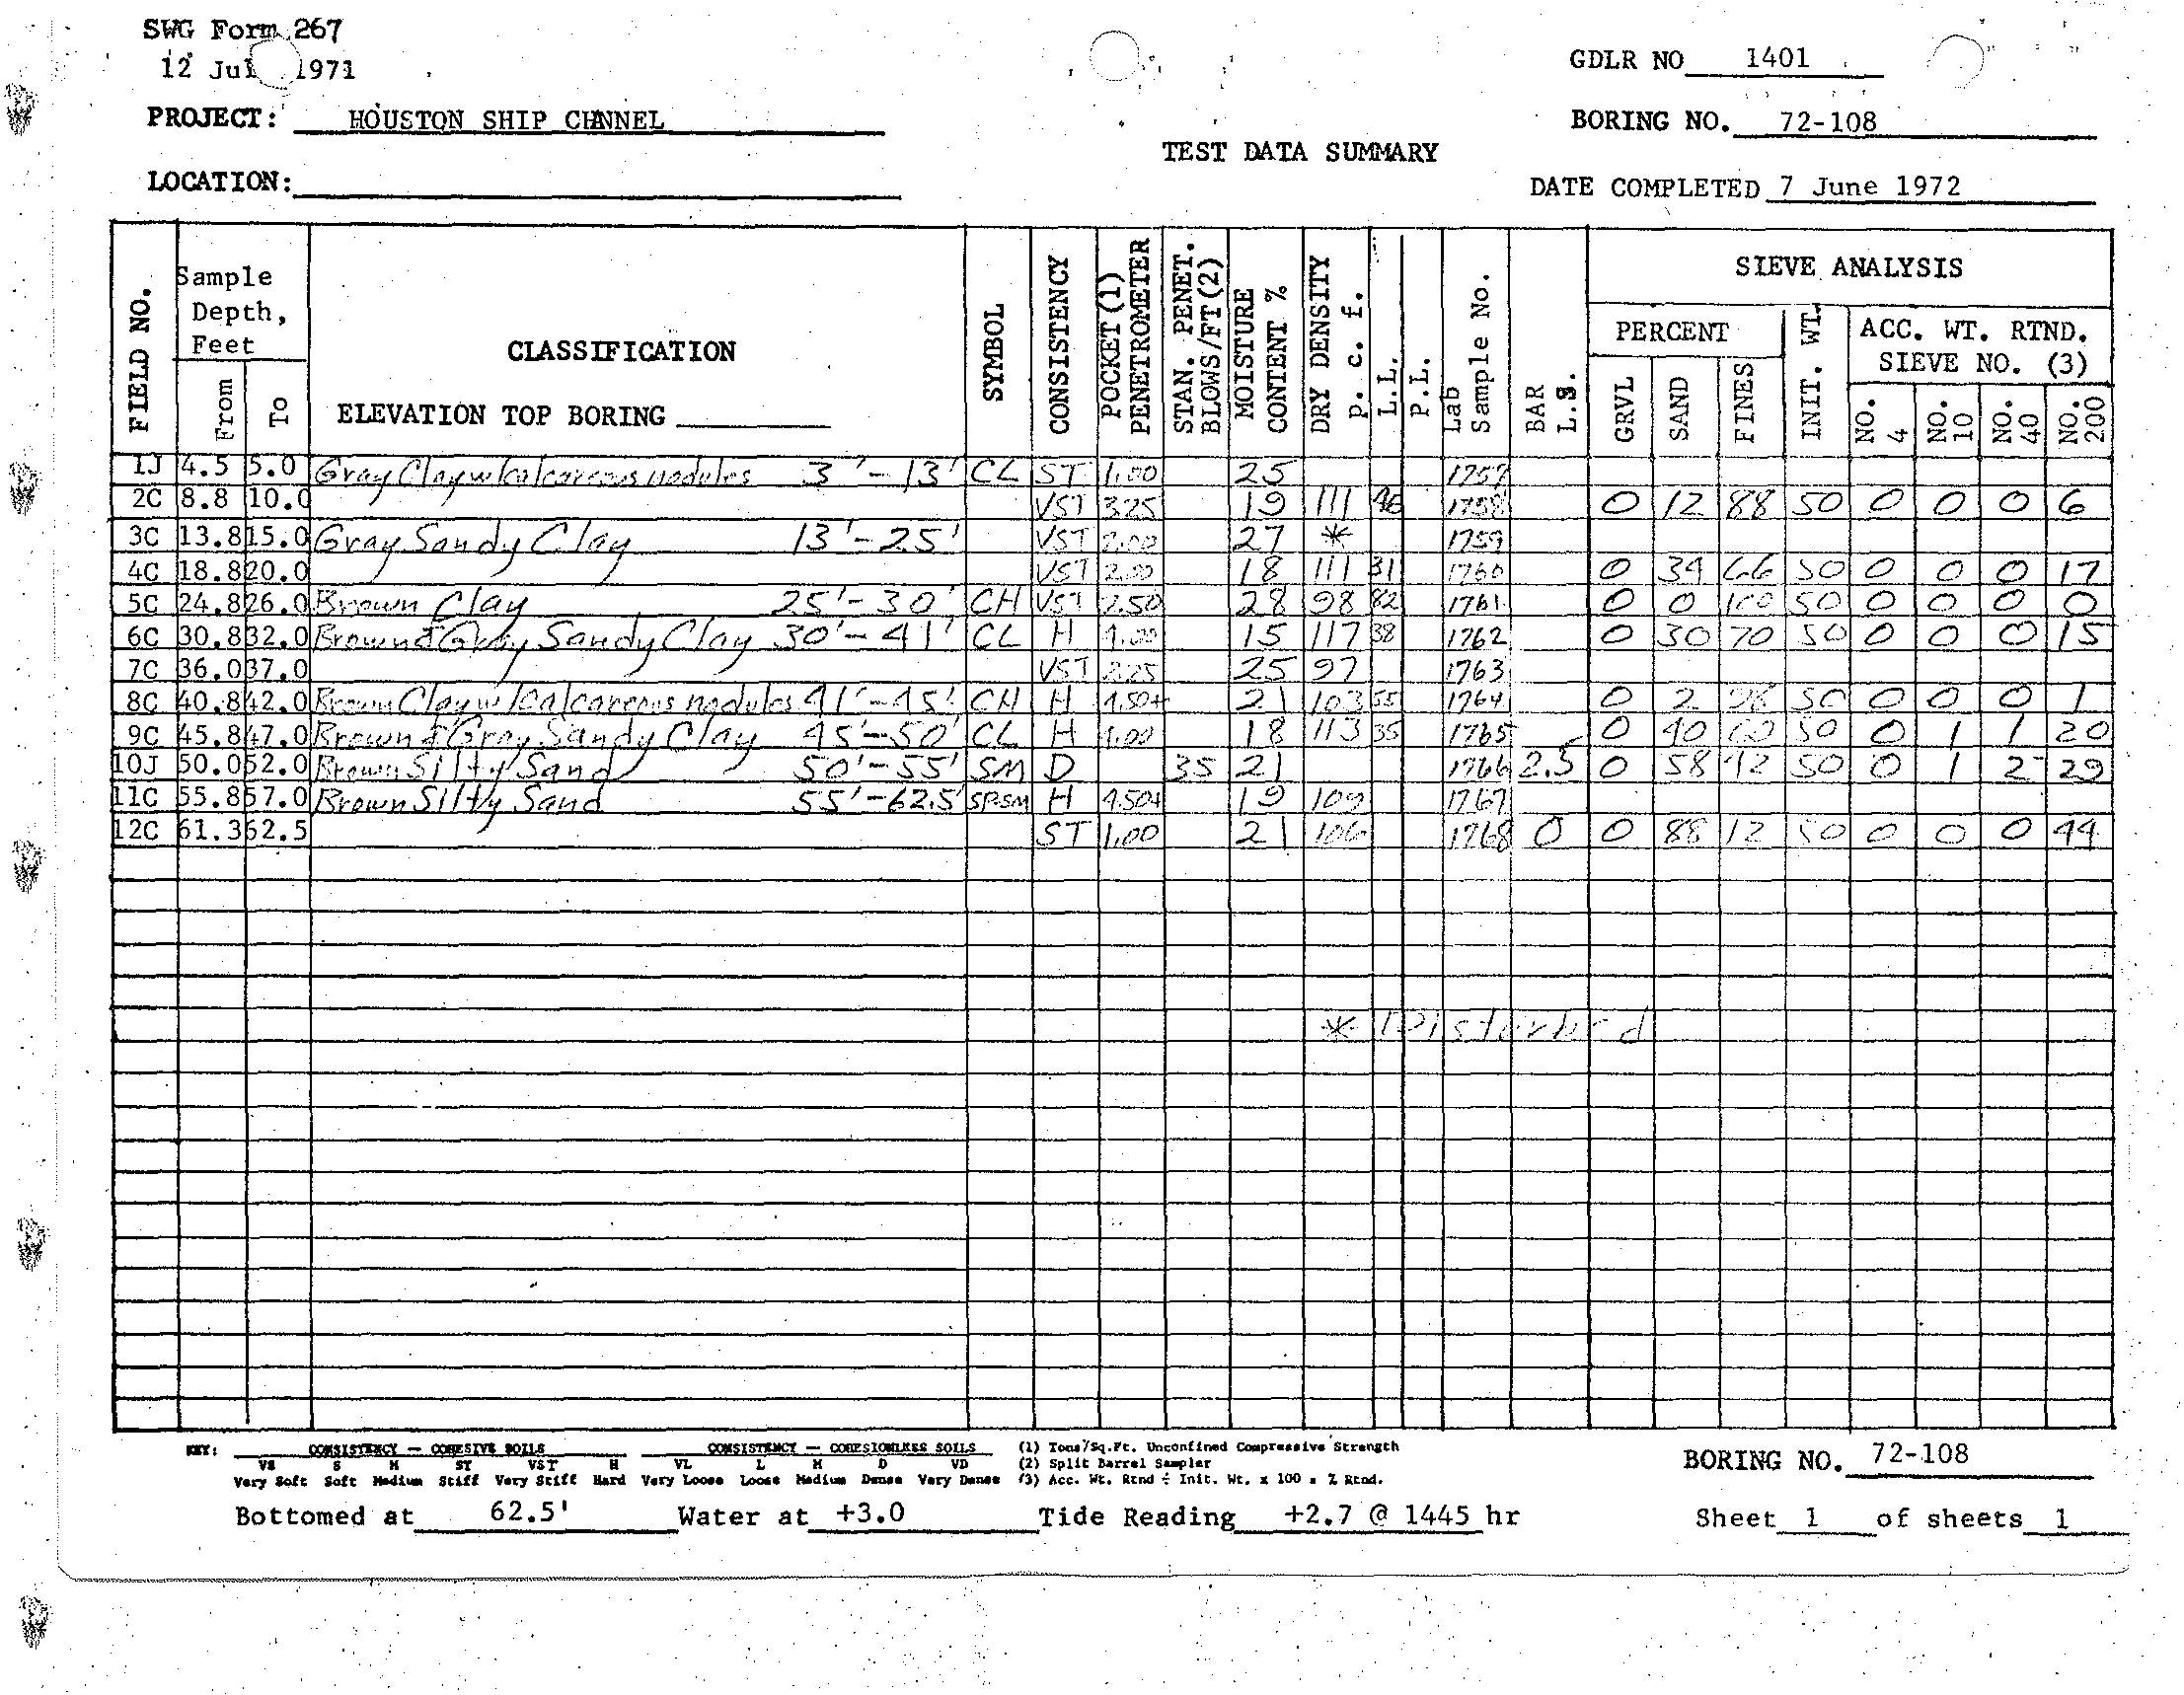 SWG Form 267
12 Jul 1971
GDLR NO 1401
PROJECT: HOUSTON SHIP CHNNEL
BORING NO. 72-108
TEST DATA SUMMARY
LOCATION:
DATE COMPLETED 7 June 1972
FIELD NO.
Sample Depth, Feet
From
To
CLASSIFICATION
ELEVATION TOP BORING
SYMBOL
CONSISTENCY
POCKET (1) PENETROMETER
STAN. PENET. BLOWS/FT (2)
MOISTURE CONTENT %
DRY DENSITY p. c. f.
L.L.
P.L.
Lab Sample No.
BAR L.S.
SIEVE ANALYSIS
PERCENT
GRVL
SAND
FINES
INIT. WT.
ACC. WT. RTND. SIEVE NO. (3)
NO. 4
NO. 10
NO. 40
NO. 200
1J 4.5 5.0 Gray Clay w/calcareous nodules 3'-13' CL ST 1.00 25 1757
2C 8.8 10.0 VST 3.25 19 111 46 1758 0 12 88 50 0 0 0 6
3C 13.8 15.0 Gray Sandy Clay 13'-25' VST 2.00 27 * 1759
4C 18.8 20.0 VST 2.00 18 111 31 1760 0 34 66 50 0 0 0 17
5C 24.8 26.0 Brown Clay 25'-30' CH VST 2.50 28 98 82 1761 0 0 100 50 0 0 0 0
6C 30.8 32.0 Brown & Gray Sandy Clay 30'-41' CL H 4.00 15 117 38 1762 0 30 70 50 0 0 0 15
7C 36.0 37.0 VST 2.25 25 97 1763
8C 40.8 42.0 Brown Clay w/calcareous nodules 41'-45' CH H 4.50+ 21 103 55 1764 0 2 98 50 0 0 0 1
9C 45.8 47.0 Brown & Gray Sandy Clay 45'-50' CL H 4.00 18 113 35 1765 0 40 60 50 0 1 1 20
10J 50.0 52.0 Brown Silty Sand 50'-55' SM D 35 21 1766 2.5 0 58 42 50 0 1 2 29
11C 55.8 57.0 Brown Silty Sand 55'-62.5' SP-SM H 4.50+ 19 109 1767
12C 61.3 62.5 ST 1.00 21 106 1768 0 0 88 12 50 0 0 0 44
* Disturbed
KEY: CONSISTENCY — COHESIVE SOILS CONSISTENCY — COHESIONLESS SOILS (1) Tons/Sq.Ft. Unconfined Compressive Strength
VS S M ST VST H VL L M D VD (2) Split Barrel Sampler
Very Soft Soft Medium Stiff Very Stiff Hard Very Loose Loose Medium Dense Very Dense (3) Acc. Wt. Rtnd ÷ Init. Wt. x 100 = % Rtnd.
BORING NO. 72-108
Bottomed at 62.5' Water at +3.0 Tide Reading +2.7 @ 1445 hr Sheet 1 of sheets 1